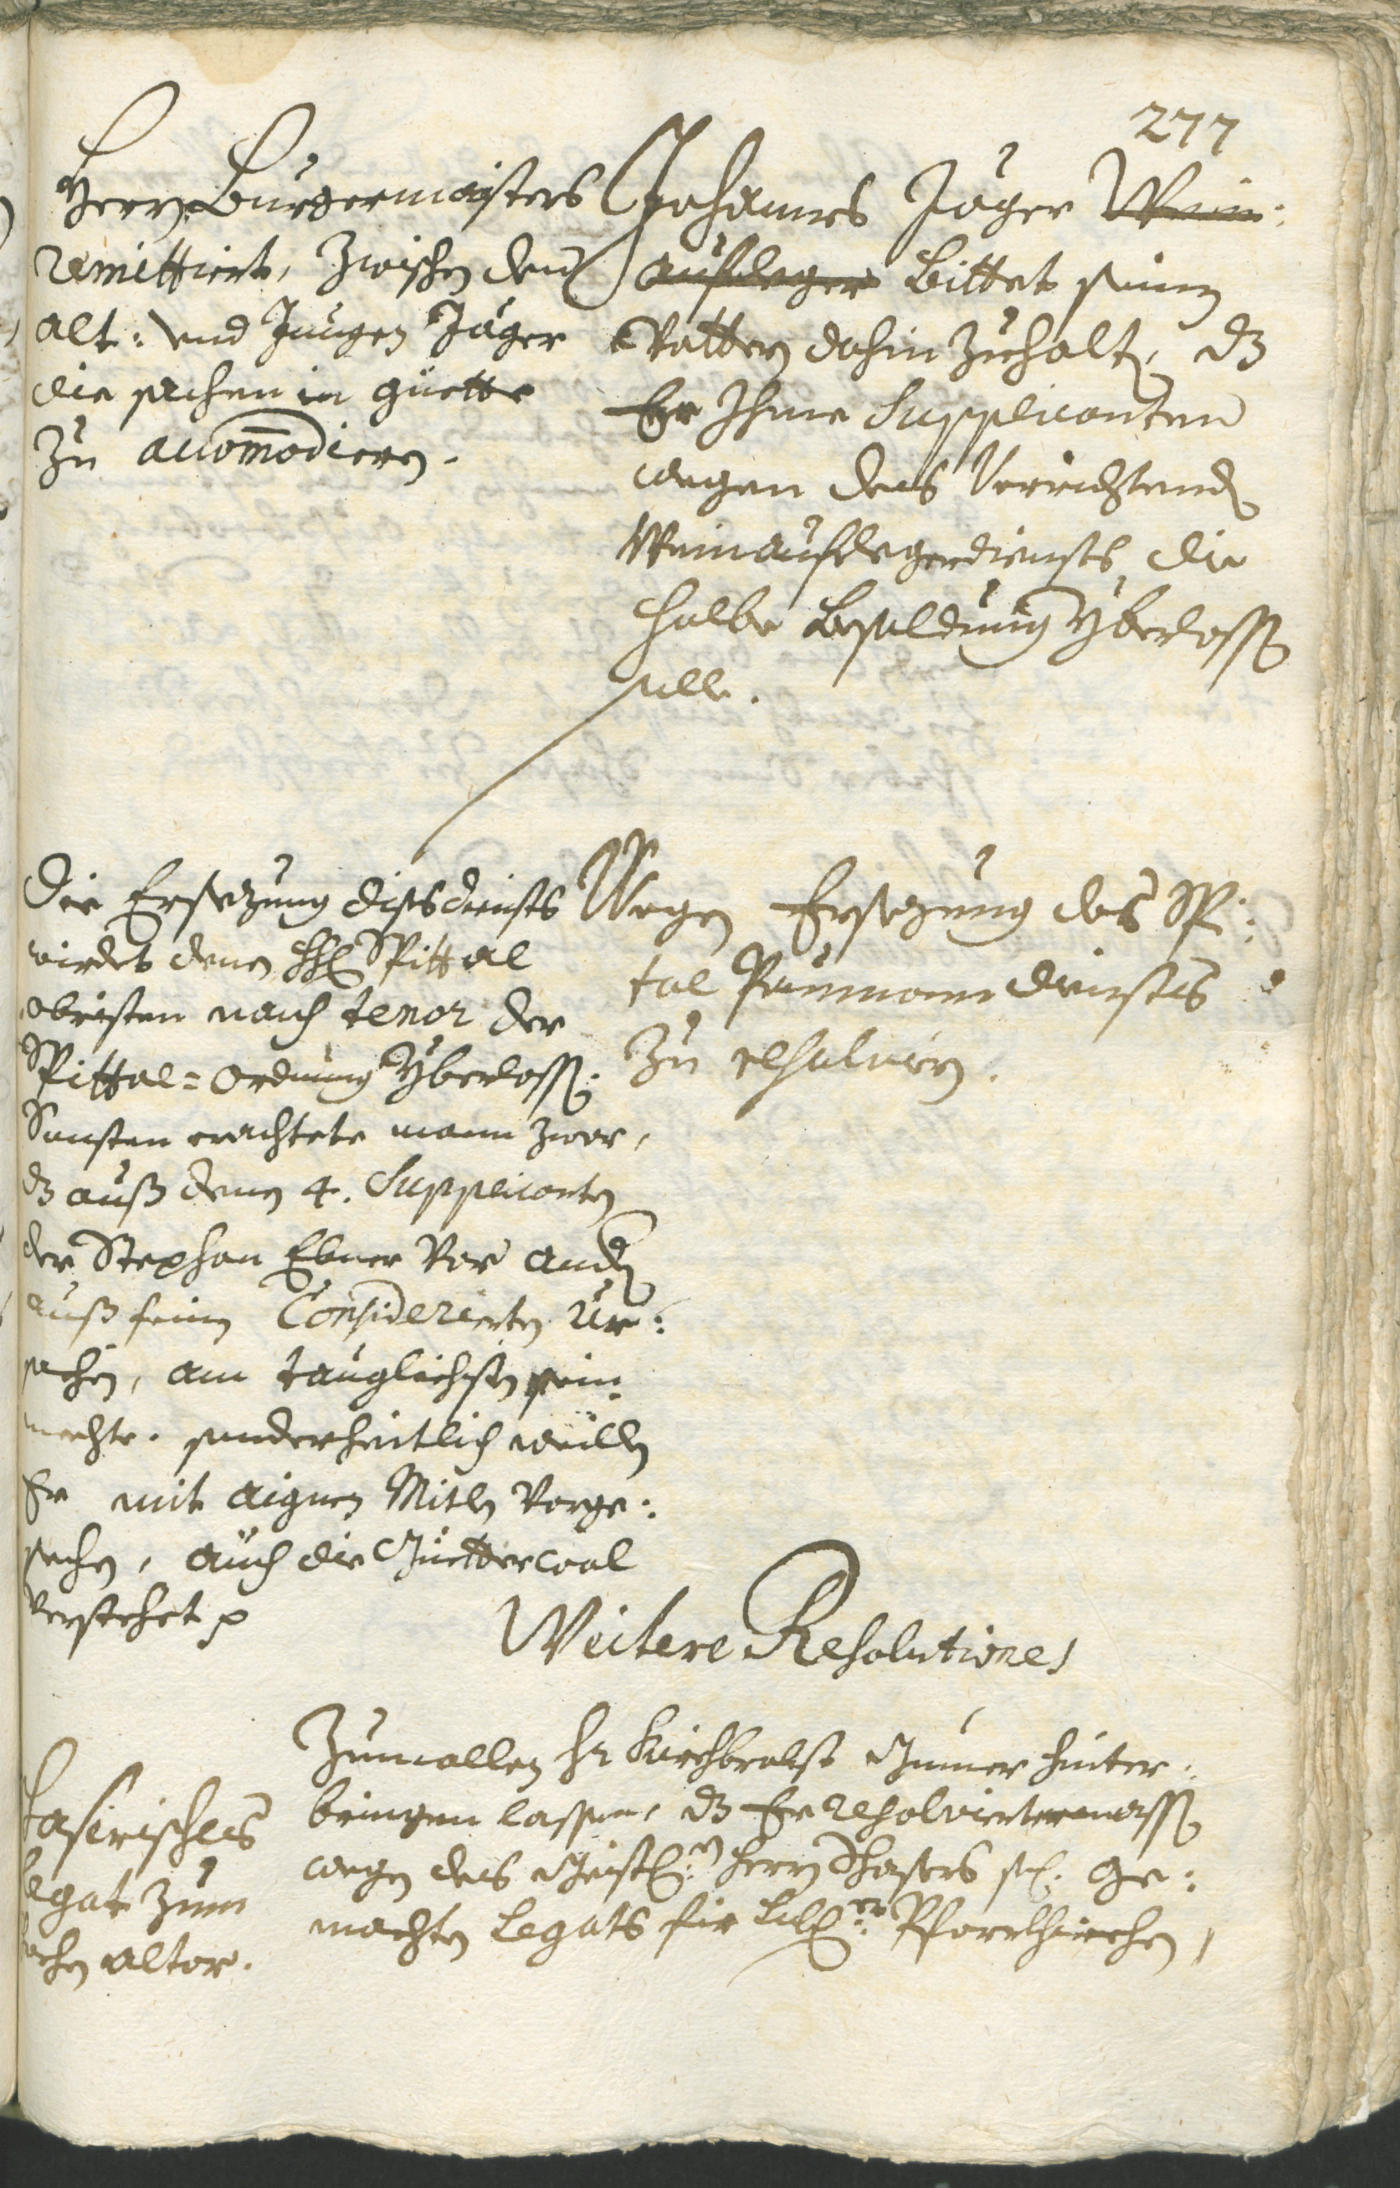 277
Herrn Burgermaisters
remittiert, zwischen den
alt: vnd Jungen Jäger
die sachen in güette
zu accom̄odieren.
Johannes Jäger Wein:
aufleger bittet seinen
Vattern dahin zuhalten, dz
Er Ihme Supplicanten
wegen des verrichtenden
Weinauflegerdiensts die
halbe besoldung yberlassen
solle.
Die Ersezung dises diensts
wirdet denen HH Spittal
obristen nach tenor der
Spittal=ordnung yberlassen.
Sonsten erachtete mann zwar,
dz auß denen 4. Supplicanten
der Stephan Ebner vor andern
auß seinen Considerierten Ur:
sachen, am tauglichsten sein
mechte. sonderheitlich weillen
Er mit aignen Mitlen vorge:
sechen, auch die Güetter wol
verstehet p
Wegen Ersezung des Spi:
tal Paumann diensts
zu resolviern.
Weitere Resolutiones
legat zum
altar.
Zumallen Hr Kirchbrobst hinter:
bringen lassen, dz Er resolviertermassen
wegen des Geistl: Herrn sel: ge:
machten Legats für Pfarrkhirchen,